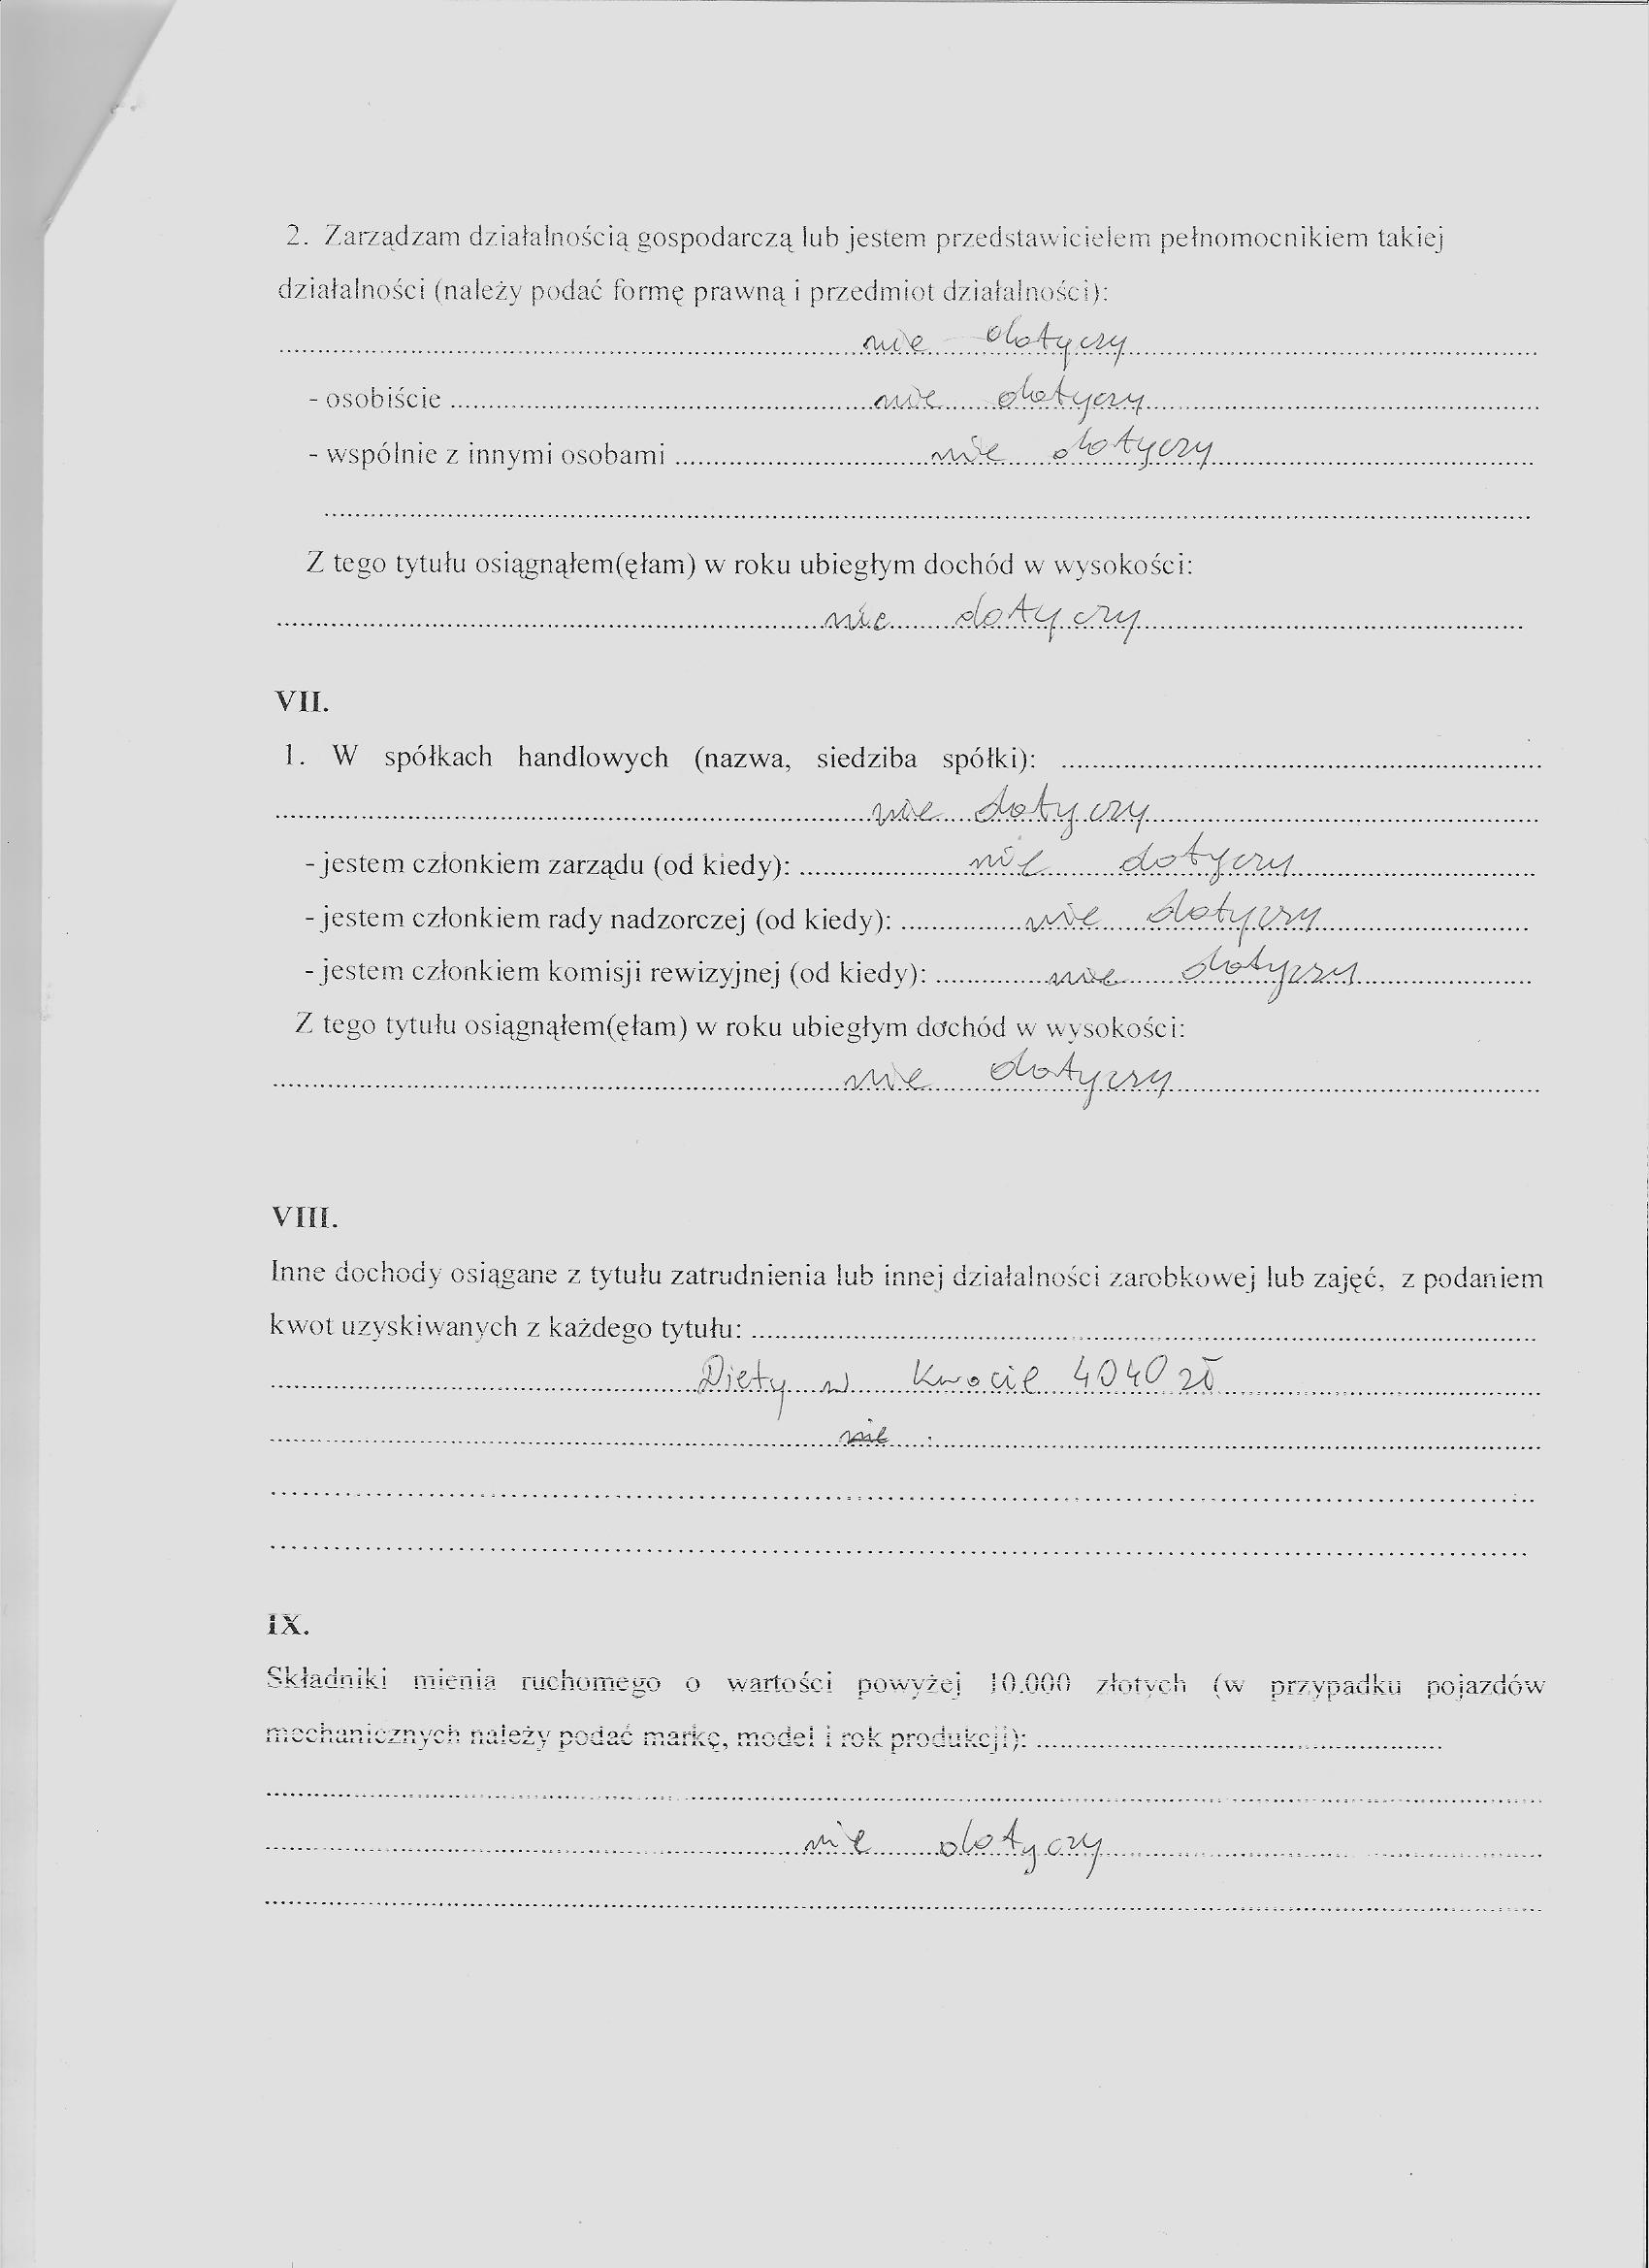 2. Zarządzam działalnością gospodarczą lub jestem przedstawicielem pełnomocnikiem takiej
działalności (należy podać formę prawną i przedmiot działalności):
nie dotyczy
- osobiście nie dotyczy
- wspólnie z innymi osobami nie dotyczy
Z tego tytułu osiągnąłem(ęłam) w roku ubiegłym dochód w wysokości:
nie dotyczy
VII.
1. W spółkach handlowych (nazwa, siedziba spółki):
nie dotyczy
- jestem członkiem zarządu (od kiedy): nie dotyczy
- jestem członkiem rady nadzorczej (od kiedy): nie dotyczy
- jestem członkiem komisji rewizyjnej (od kiedy): nie dotyczy
Z tego tytułu osiągnąłem(ęłam) w roku ubiegłym dochód w wysokości:
nie dotyczy
VIII.
Inne dochody osiągane z tytułu zatrudnienia lub innej działalności zarobkowej lub zajęć, z podaniem
kwot uzyskiwanych z każdego tytułu:
Diety w kwocie 4040 zł
nie
IX.
Składniki mienia ruchomego o wartości powyżej 10.000 złotych (w przypadku pojazdów
mechanicznych należy podać markę, model i rok produkcji):
nie dotyczy